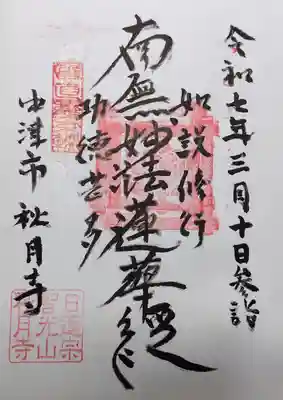 令和七年三月十日参詣
如説修行
南無妙法蓮華経
功徳甚多
中津市 月寺
日蓮宗
光山
月寺